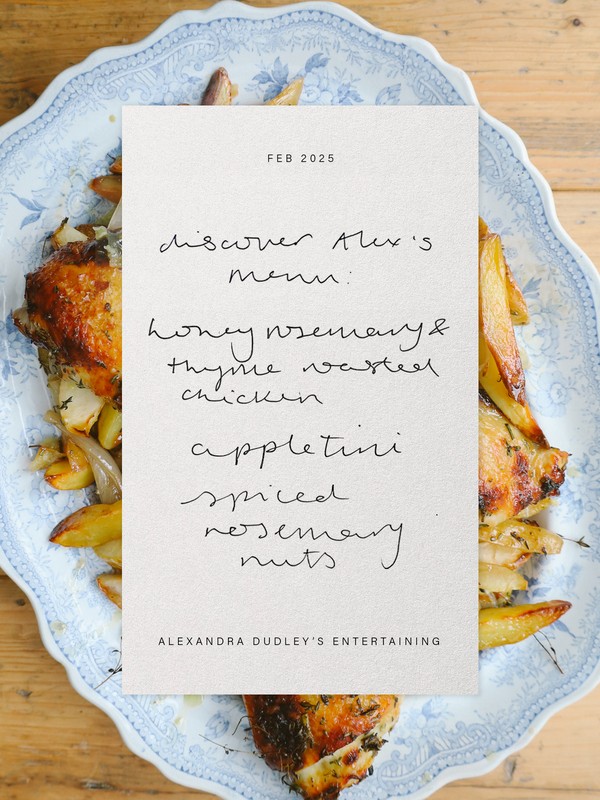 FEB 2025
discover Alex's
menu:
honey rosemary &
thyme roasted
chicken
appletini
spiced
rosemary
nuts
ALEXANDRA DUDLEY'S ENTERTAINING